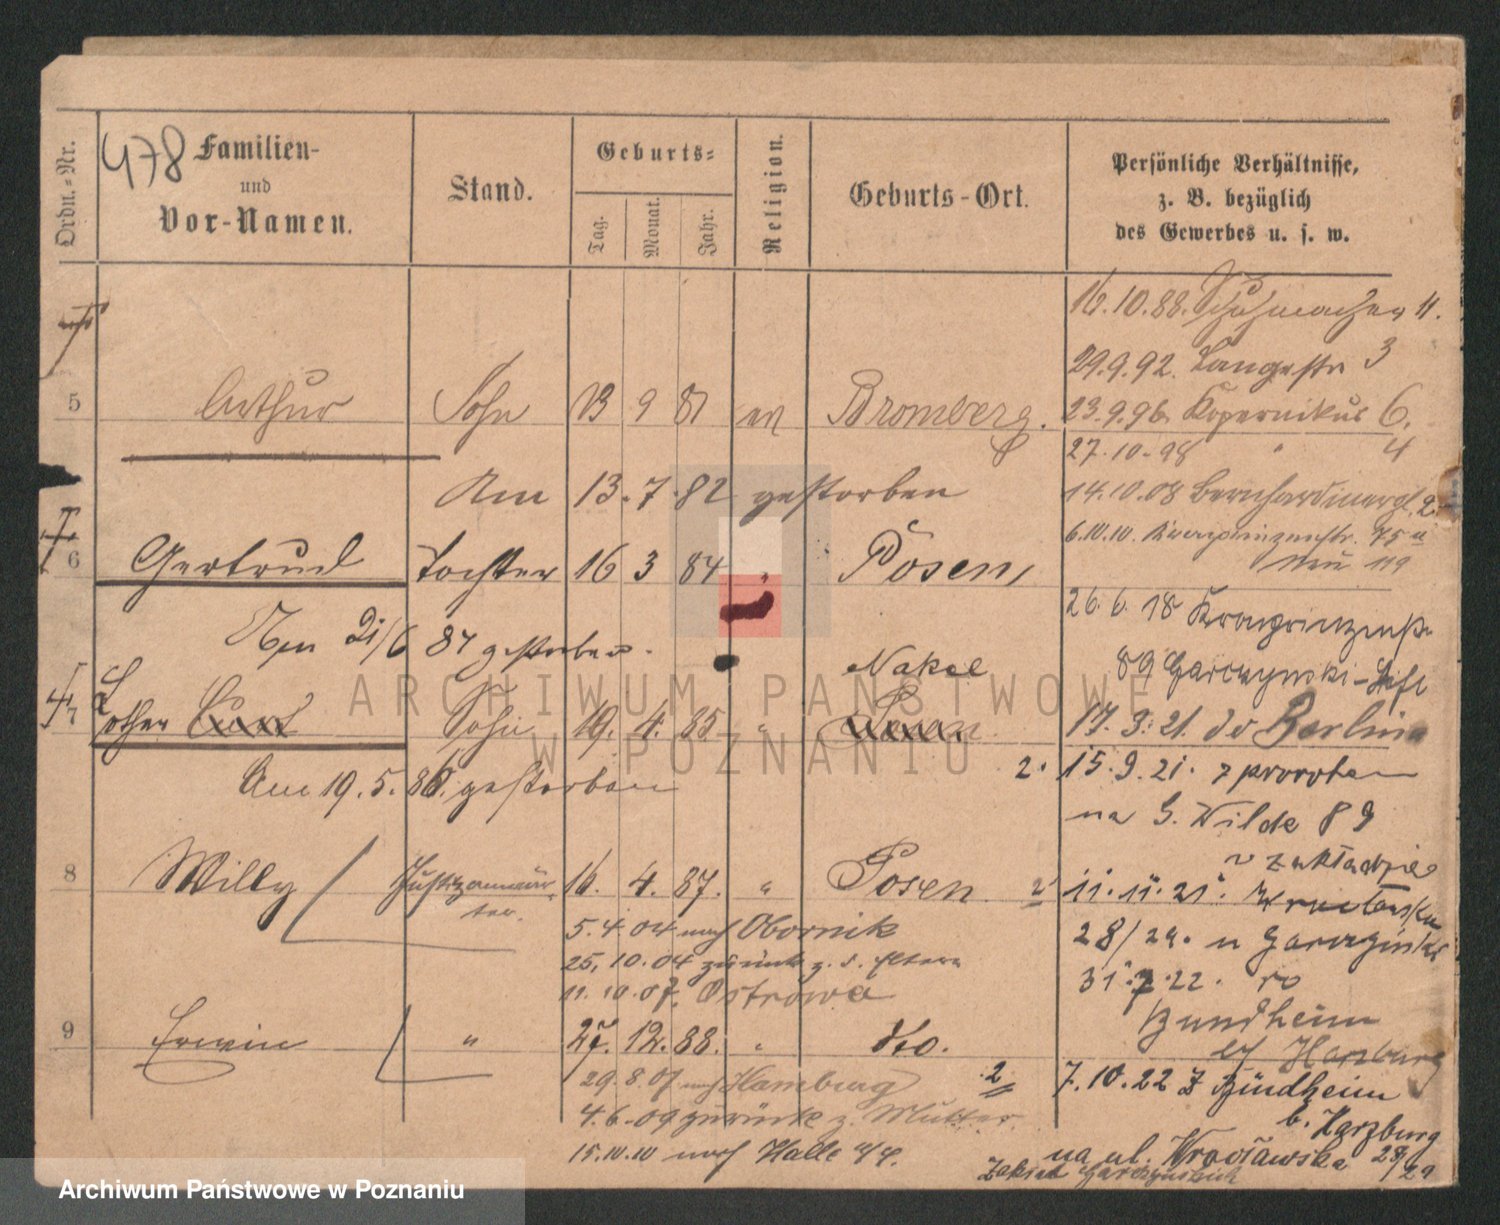 478
Ordn.-Nr.
Familien-
und
Vor-Namen.
Stand.
Geburts-
Tag.
Monat.
Jahr.
Religion.
Geburts-Ort.
Persönliche Verhältnisse,
z. B. bezüglich
des Gewerbes u. s. w.
16.10.88. Schuhmacher 11.
29.9.92. Langestr 3
5 Arthur Sohn 13 9 81 ev Bromberg.
23.9.96 Kopernikus 6.
27.10.98 " 4
Am 13.7.82 gestorben
14.10.08 Bernhardinerpl. 2.
6.10.10 Kronprinzenstr. 75a
Neu 119
6 Gertrud Tochter 16 3 84 " Posen,
26.6.18 Kronprinzenstr.
Am 21/6 84 gestorben.
89 Garczynski-Stift
Nakel
7 Lothar Curt Sohn 19. 4. 85. "
17.3.21. Berlina
Am 19.5.86. gestorben
2. 15.9.21. z
na G. Wilde 89
w zakładzie
8 Willy 16. 4. 87. " Posen. 2
11.11.21.
5.4.04 nach Obornik
28/29. u
25.10.04 zurück z. d. Eltern
31.7.22.
11.10.07. Ostrowo
Bündheim
9 Erwin " 27. 12. 88. " dto.
b/ Harzburg
29.8.07 nach Hamburg 2
7.10.22 z Bündheim
4.6.09 zurück z. Mutter.
b. Harzburg
15.10.10 nach Halle a/S.
na ul. Wrocławska 28/29
Zakład
ARCHIWUM PAŃSTWOWE
W POZNANIU
Archiwum Państwowe w Poznaniu